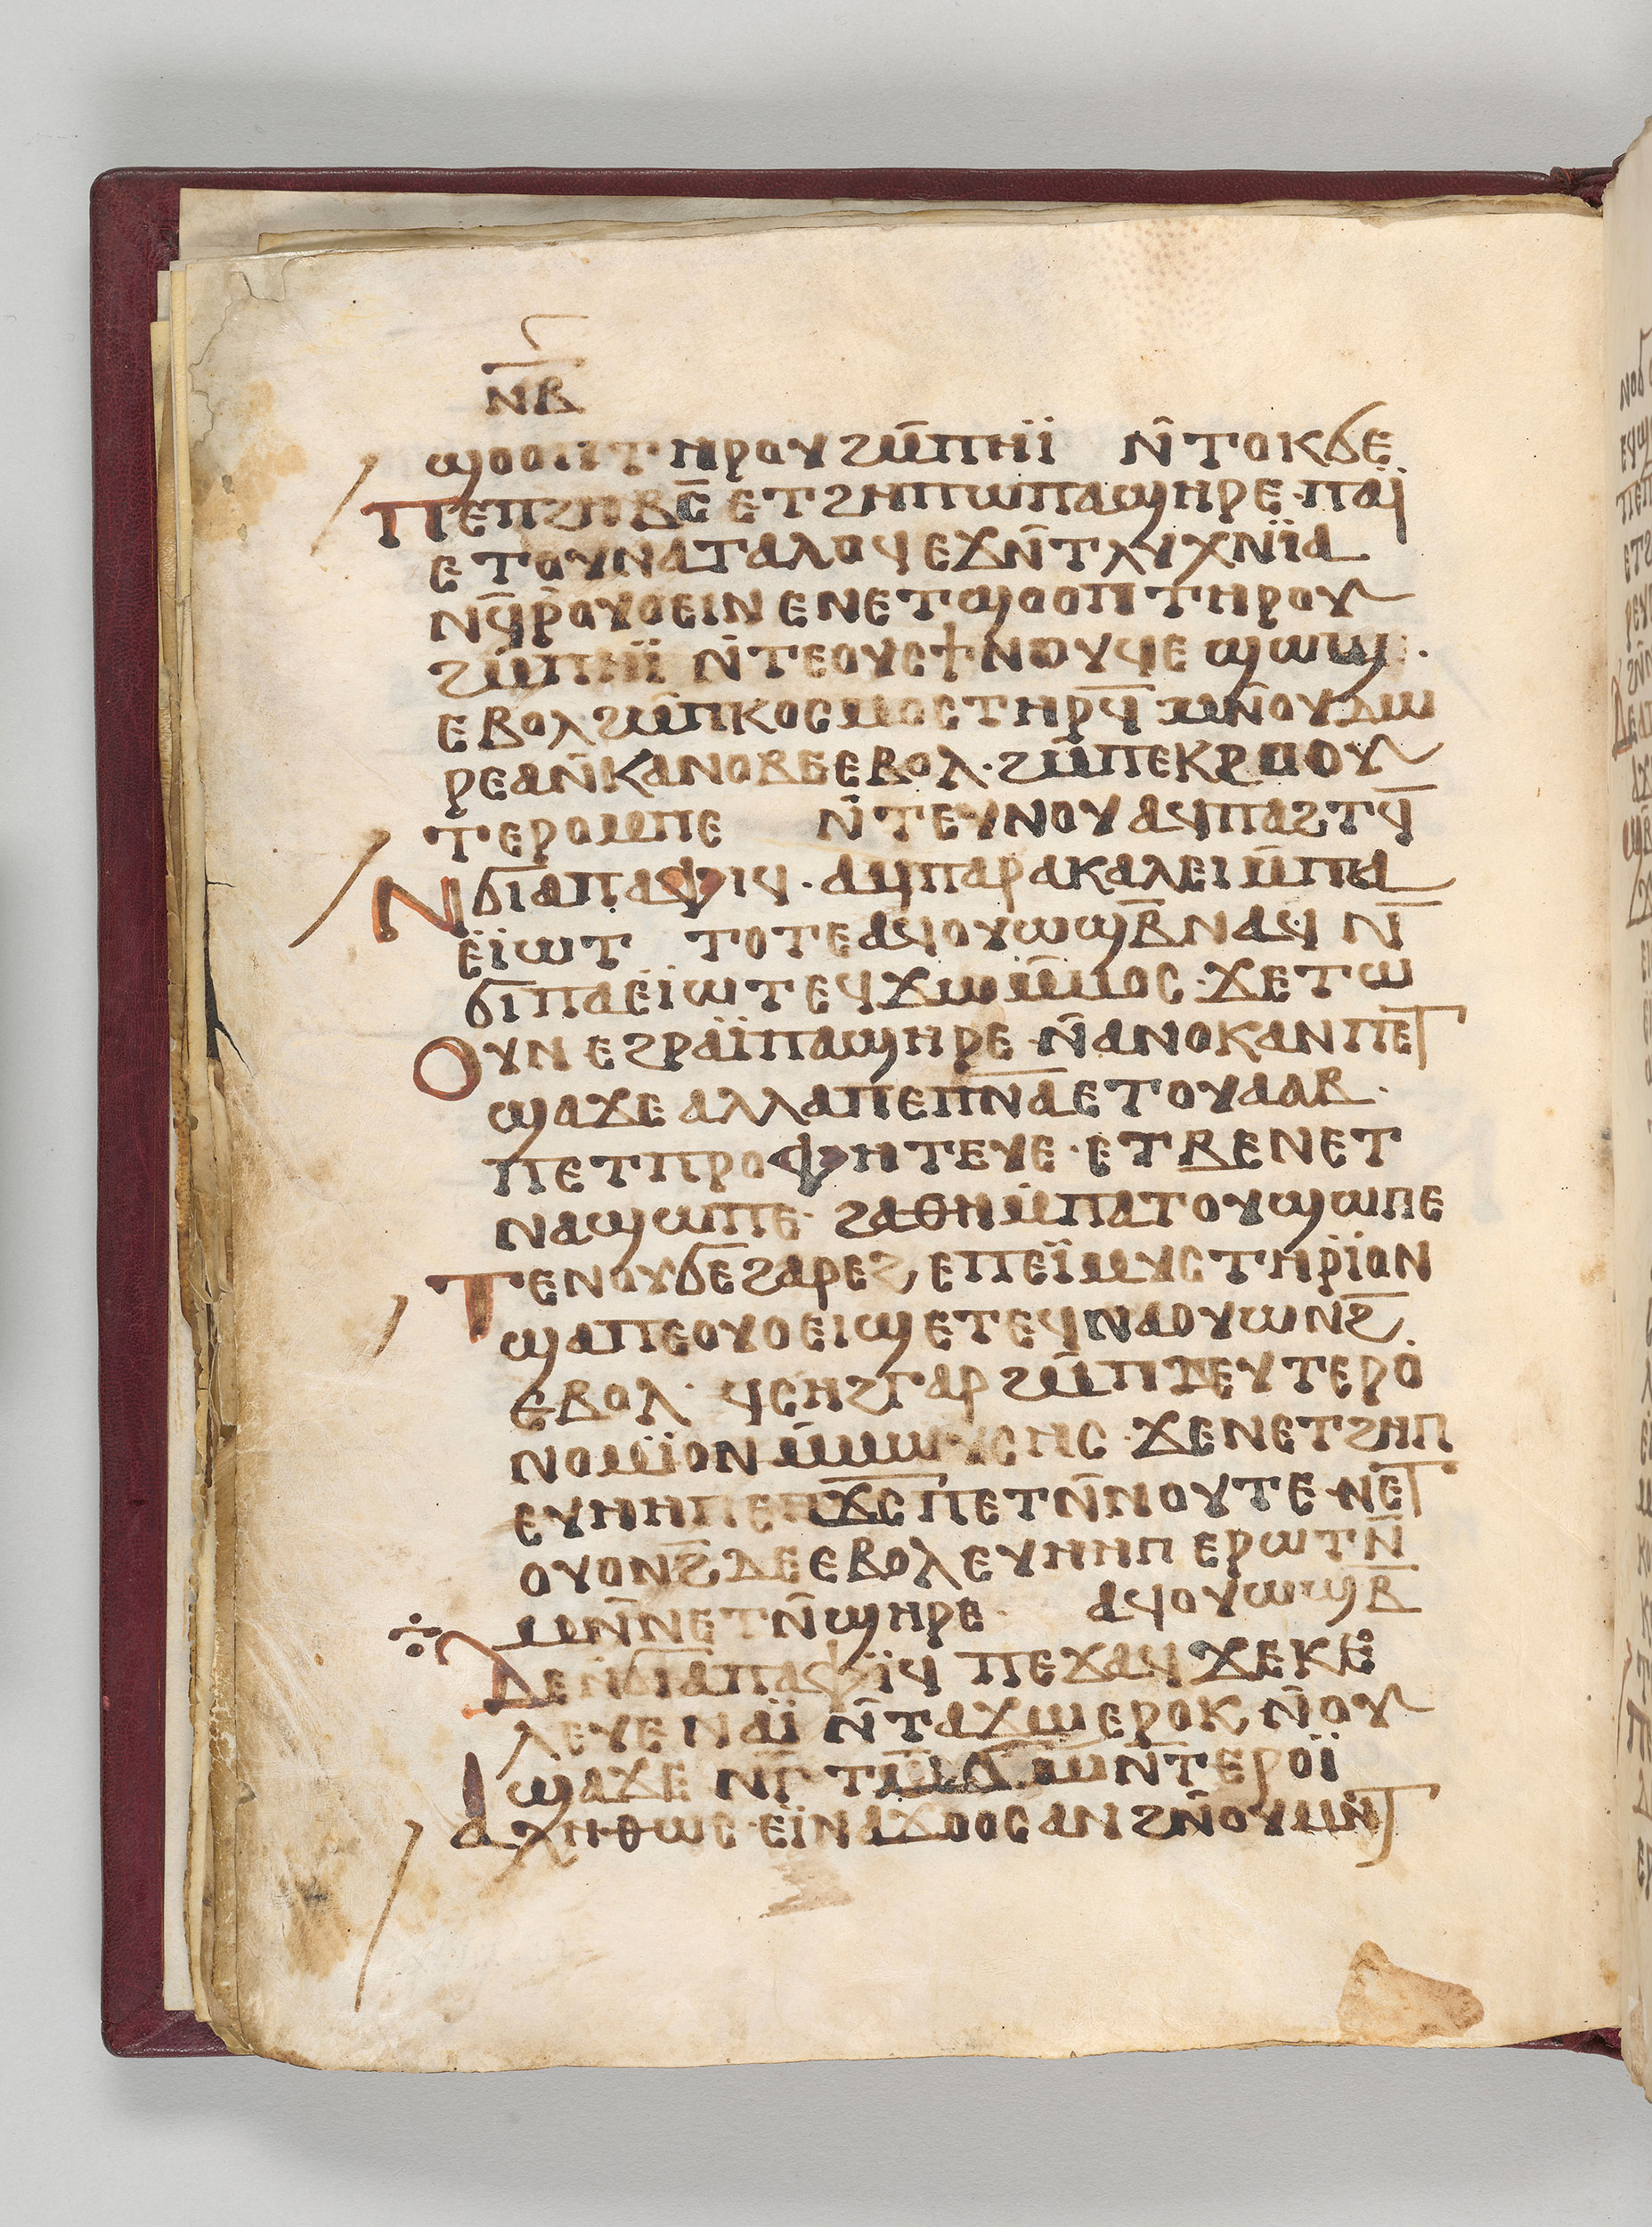 ⲛⲃ̅
ϣⲟⲟⲡ ⲧⲏⲣⲟⲩ ϩⲙ̄ⲡⲏⲓ̈ ⲛ̄ⲧⲟⲕϭⲉ
ⲡⲉⲡϩⲏⲃⲥ̄ ⲉⲧϩⲏⲡⲱⲡⲁϣⲏⲣⲉ· ⲡⲁⲓ̈
ⲉⲧⲟⲩⲛⲁⲧⲁⲗⲟϥ ⲉϫⲛ̄ⲧⲗⲩⲭⲛⲓ̈ⲁ
ⲛϥ̄ⲣ̄ⲟⲩⲟⲉⲓⲛ ⲉⲛⲉⲧϣⲟⲟⲡ ⲧⲏⲣⲟⲩ
ϩⲙ̄ⲡⲏⲓ̈ ⲛ̄ⲧⲉⲟⲩⲥϯⲛⲟⲩϥⲉ ϣⲱϣ·
ⲉⲃⲟⲗ ϩⲙ̄ⲡⲕⲟⲥⲙⲟⲥ ⲧⲏⲣϥ̄ ⲙⲛ̄ⲟⲩϫⲱ
ⲣⲉⲁⲛ̄ⲕⲁⲛⲟⲃⲉ ⲉⲃⲟⲗ· ϩⲙ̄ⲡⲉⲕⲣⲡⲟⲩ
ⲧⲉⲣⲟⲙⲡⲉ ⲛ̄ⲧⲉⲩⲛⲟⲩ ⲁϥⲡⲁϩⲧϥ̄
ⲛϭⲓⲁⲡⲁⲫⲓϥ· ⲁϥⲡⲁⲣⲁⲕⲁⲗⲉⲓ ⲙ̄ⲡⲁ
ⲉⲓ̈ⲱⲧ ⲧⲟⲧⲉ ⲁϥⲟⲩⲱϣⲃ̄ ⲛⲁϥ ⲛ̄
ϭⲓⲡⲁⲉⲓ̈ⲱⲧ ⲉϥϫⲱ ⲙ̄ⲙⲟⲥ· ϫⲉⲧⲱ
ⲟⲩⲛ ⲉϩⲣⲁⲓ̈ ⲡⲁϣⲏⲣⲉ· ⲛ̄ⲁⲛⲟⲕ ⲁⲛ ⲡⲉⲧ
ϣⲁϫⲉ ⲁⲗⲗⲁ ⲡⲉⲡⲛ̅ⲁ̅ ⲉⲧⲟⲩⲁⲁⲃ·
ⲡⲉⲧⲡⲣⲟⲫⲏⲧⲉⲩⲉ· ⲉⲧⲃⲉ ⲛⲉⲧ
ⲛⲁϣⲱⲡⲉ· ϩⲁⲑⲏ ⲙ̄ⲡⲁⲧⲟⲩϣⲱⲡⲉ
ⲧⲉⲛⲟⲩϭⲉ ϩⲁⲣⲉϩ ⲉⲡⲉⲓ̈ⲙⲩⲥⲧⲏⲣⲓ̈ⲟⲛ
ϣⲁⲡⲉⲟⲩⲟⲉⲓϣ ⲉⲧⲉϥⲛⲁⲟⲩⲱⲛϩ̄
ⲉⲃⲟⲗ· ϥⲥⲏϩ ⲅⲁⲣ ϩⲙ̄ⲡⲇⲉⲩⲧⲉⲣⲟ
ⲛⲟⲙⲓ̈ⲟⲛ ⲙ̄ⲙⲱⲩⲥⲏⲥ· ϫⲉⲛⲉⲧϩⲏⲡ
ⲉⲩⲏⲡ ⲉⲡϫⲥ̅ ⲡⲉⲧⲛ̄ⲛⲟⲩⲧⲉ· ⲛⲉⲧ
ⲟⲩⲟⲛϩ̄ ⲇⲉ ⲉⲃⲟⲗ ⲉⲩⲏⲡ ⲉⲣⲱⲧⲛ̄
ⲙⲛ̄ⲛⲉⲧⲛ̄ϣⲏⲣⲉ· ⲁϥⲟⲩⲱϣⲃ̄
ⲇⲉ ⲛ̄ϭⲓⲁⲡⲁⲫⲓ̈ϥ ⲡⲉϫⲁϥ ϫⲉⲕⲉ
ⲗⲉⲩⲉ ⲛⲁⲓ̈ ⲛ̄ⲧⲁϫⲱ ⲉⲣⲟⲕ ⲛ̄ⲟⲩ
ϣⲁϫⲉ ⲛⲅ̄ⲧⲙ̄ϭⲱⲛ̄ⲧ ⲉⲣⲟⲓ̈
ⲁⲗⲏⲑⲱⲥ· ⲉⲓ̈ⲛⲁϫⲟⲟⲥ ⲁⲛ ϩⲛ̄ⲟⲩⲙⲛ̄ⲧ